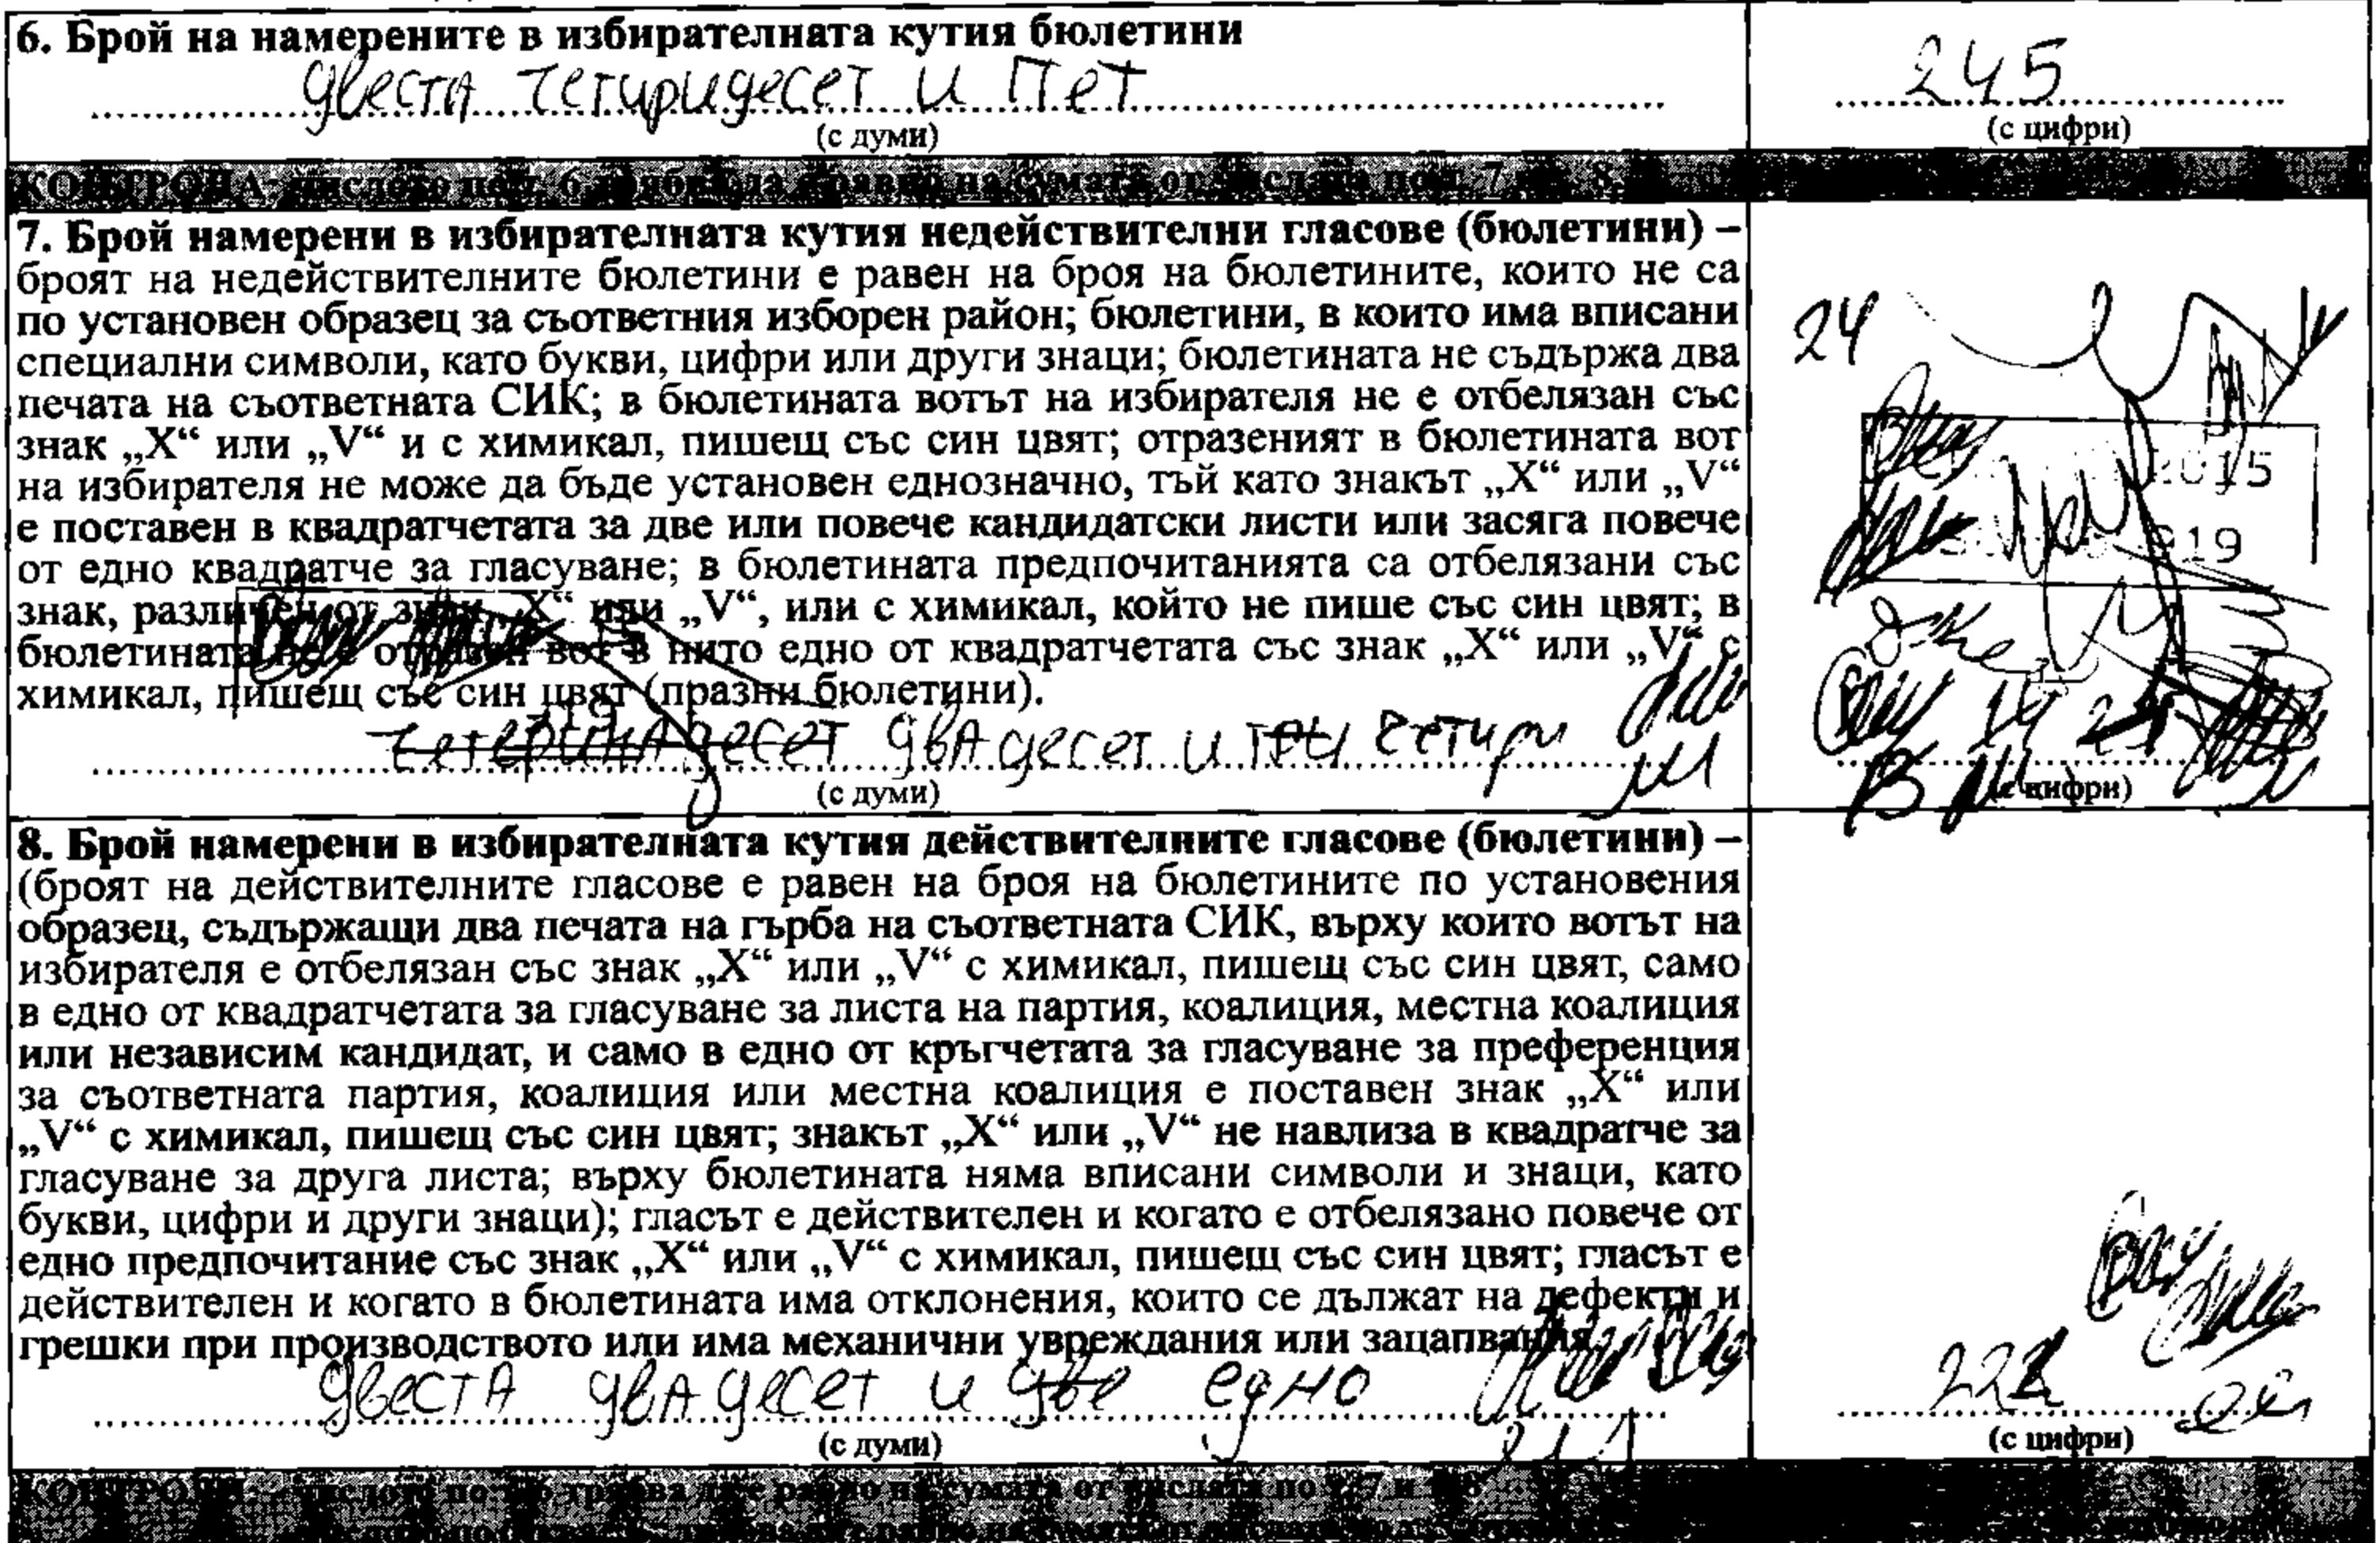 6. Брой на намерените в избирателната кутия бюлетини
245
двеста четиридесет и Пет
(с думи)
(с цифри)
7. Брой намерени в избирателната кутия недействителни гласове (бюлетини) –
броят на недействителните бюлетини е равен на броя на бюлетините, които не са
по установен образец за съответния изборен район; бюлетини, в които има вписани
24
специални символи, като букви, цифри или други знаци; бюлетината не съдържа два
печата на съответната СИК; в бюлетината вотът на избирателя не е отбелязан със
знак „X“ или „V“ и с химикал, пишещ със син цвят; отразеният в бюлетината вот
2015
на избирателя не може да бъде установен еднозначно, тъй като знакът „X“ или „V“
е поставен в квадратчетата за две или повече кандидатски листи или засяга повече
от едно квадратче за гласуване; в бюлетината предпочитанията са отбелязани със
знак, различен от знак „X“ или „V“, или с химикал, който не пише със син цвят; в
бюлетината не е отразен вот в нито едно от квадратчетата със знак „X“ или „V“ с
химикал, пишещ със син цвят (празни бюлетини).
двадесет и три четири
(с думи)
(с цифри)
8. Брой намерени в избирателната кутия действителните гласове (бюлетини) –
(броят на действителните гласове е равен на броя на бюлетините по установения
образец, съдържащи два печата на гърба на съответната СИК, върху които вотът на
избирателя е отбелязан със знак „X“ или „V“ с химикал, пишещ със син цвят, само
в едно от квадратчетата за гласуване за листа на партия, коалиция, местна коалиция
или независим кандидат, и само в едно от кръгчетата за гласуване за преференция
за съответната партия, коалиция или местна коалиция е поставен знак „X“ или
„V“ с химикал, пишещ със син цвят; знакът „X“ или „V“ не навлиза в квадратче за
гласуване за друга листа; върху бюлетината няма вписани символи и знаци, като
букви, цифри и други знаци); гласът е действителен и когато е отбелязано повече от
едно предпочитание със знак „X“ или „V“ с химикал, пишещ със син цвят; гласът е
действителен и когато в бюлетината има отклонения, които се дължат на дефекти и
грешки при производството или има механични увреждания или зацапвания.
двеста двадесет и две едно
(с думи)
(с цифри)